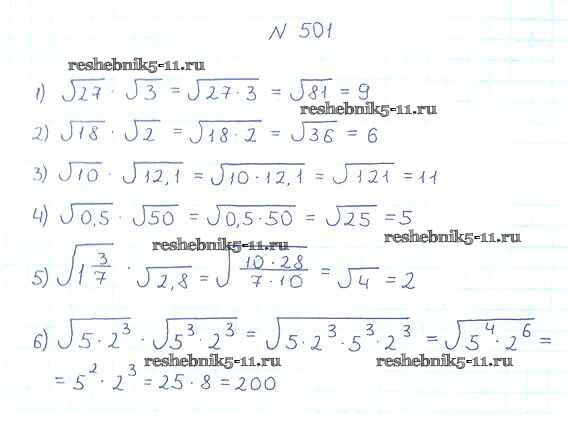 N 501
reshebnik5-11.ru
1) √27 · √3 = √27·3 = √81 = 9
reshebnik5-11.ru
2) √18 · √2 = √18·2 = √36 = 6
3) √10 · √12,1 = √10·12,1 = √121 = 11
4) √0,5 · √50 = √0,5·50 = √25 = 5
reshebnik5-11.ru
reshebnik5-11.ru
5) √1 3/7 · √2,8 = √(10·28)/(7·10) = √4 = 2
6) √5·2³ · √5³·2³ = √5·2³·5³·2³ = √5⁴·2⁶ =
reshebnik5-11.ru reshebnik5-11.ru
= 5²·2³ = 25·8 = 200